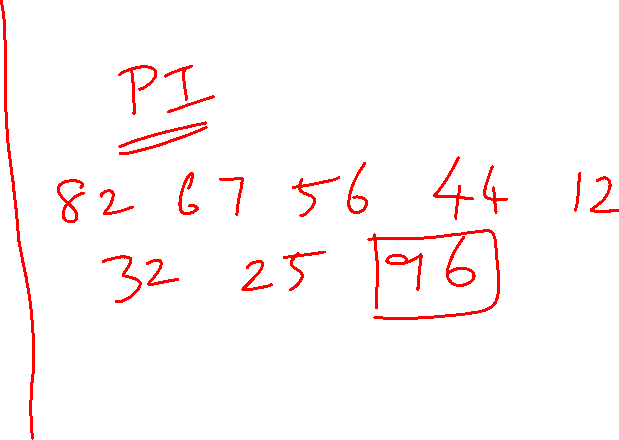 PI
82 67 56 44 12
32 25 96